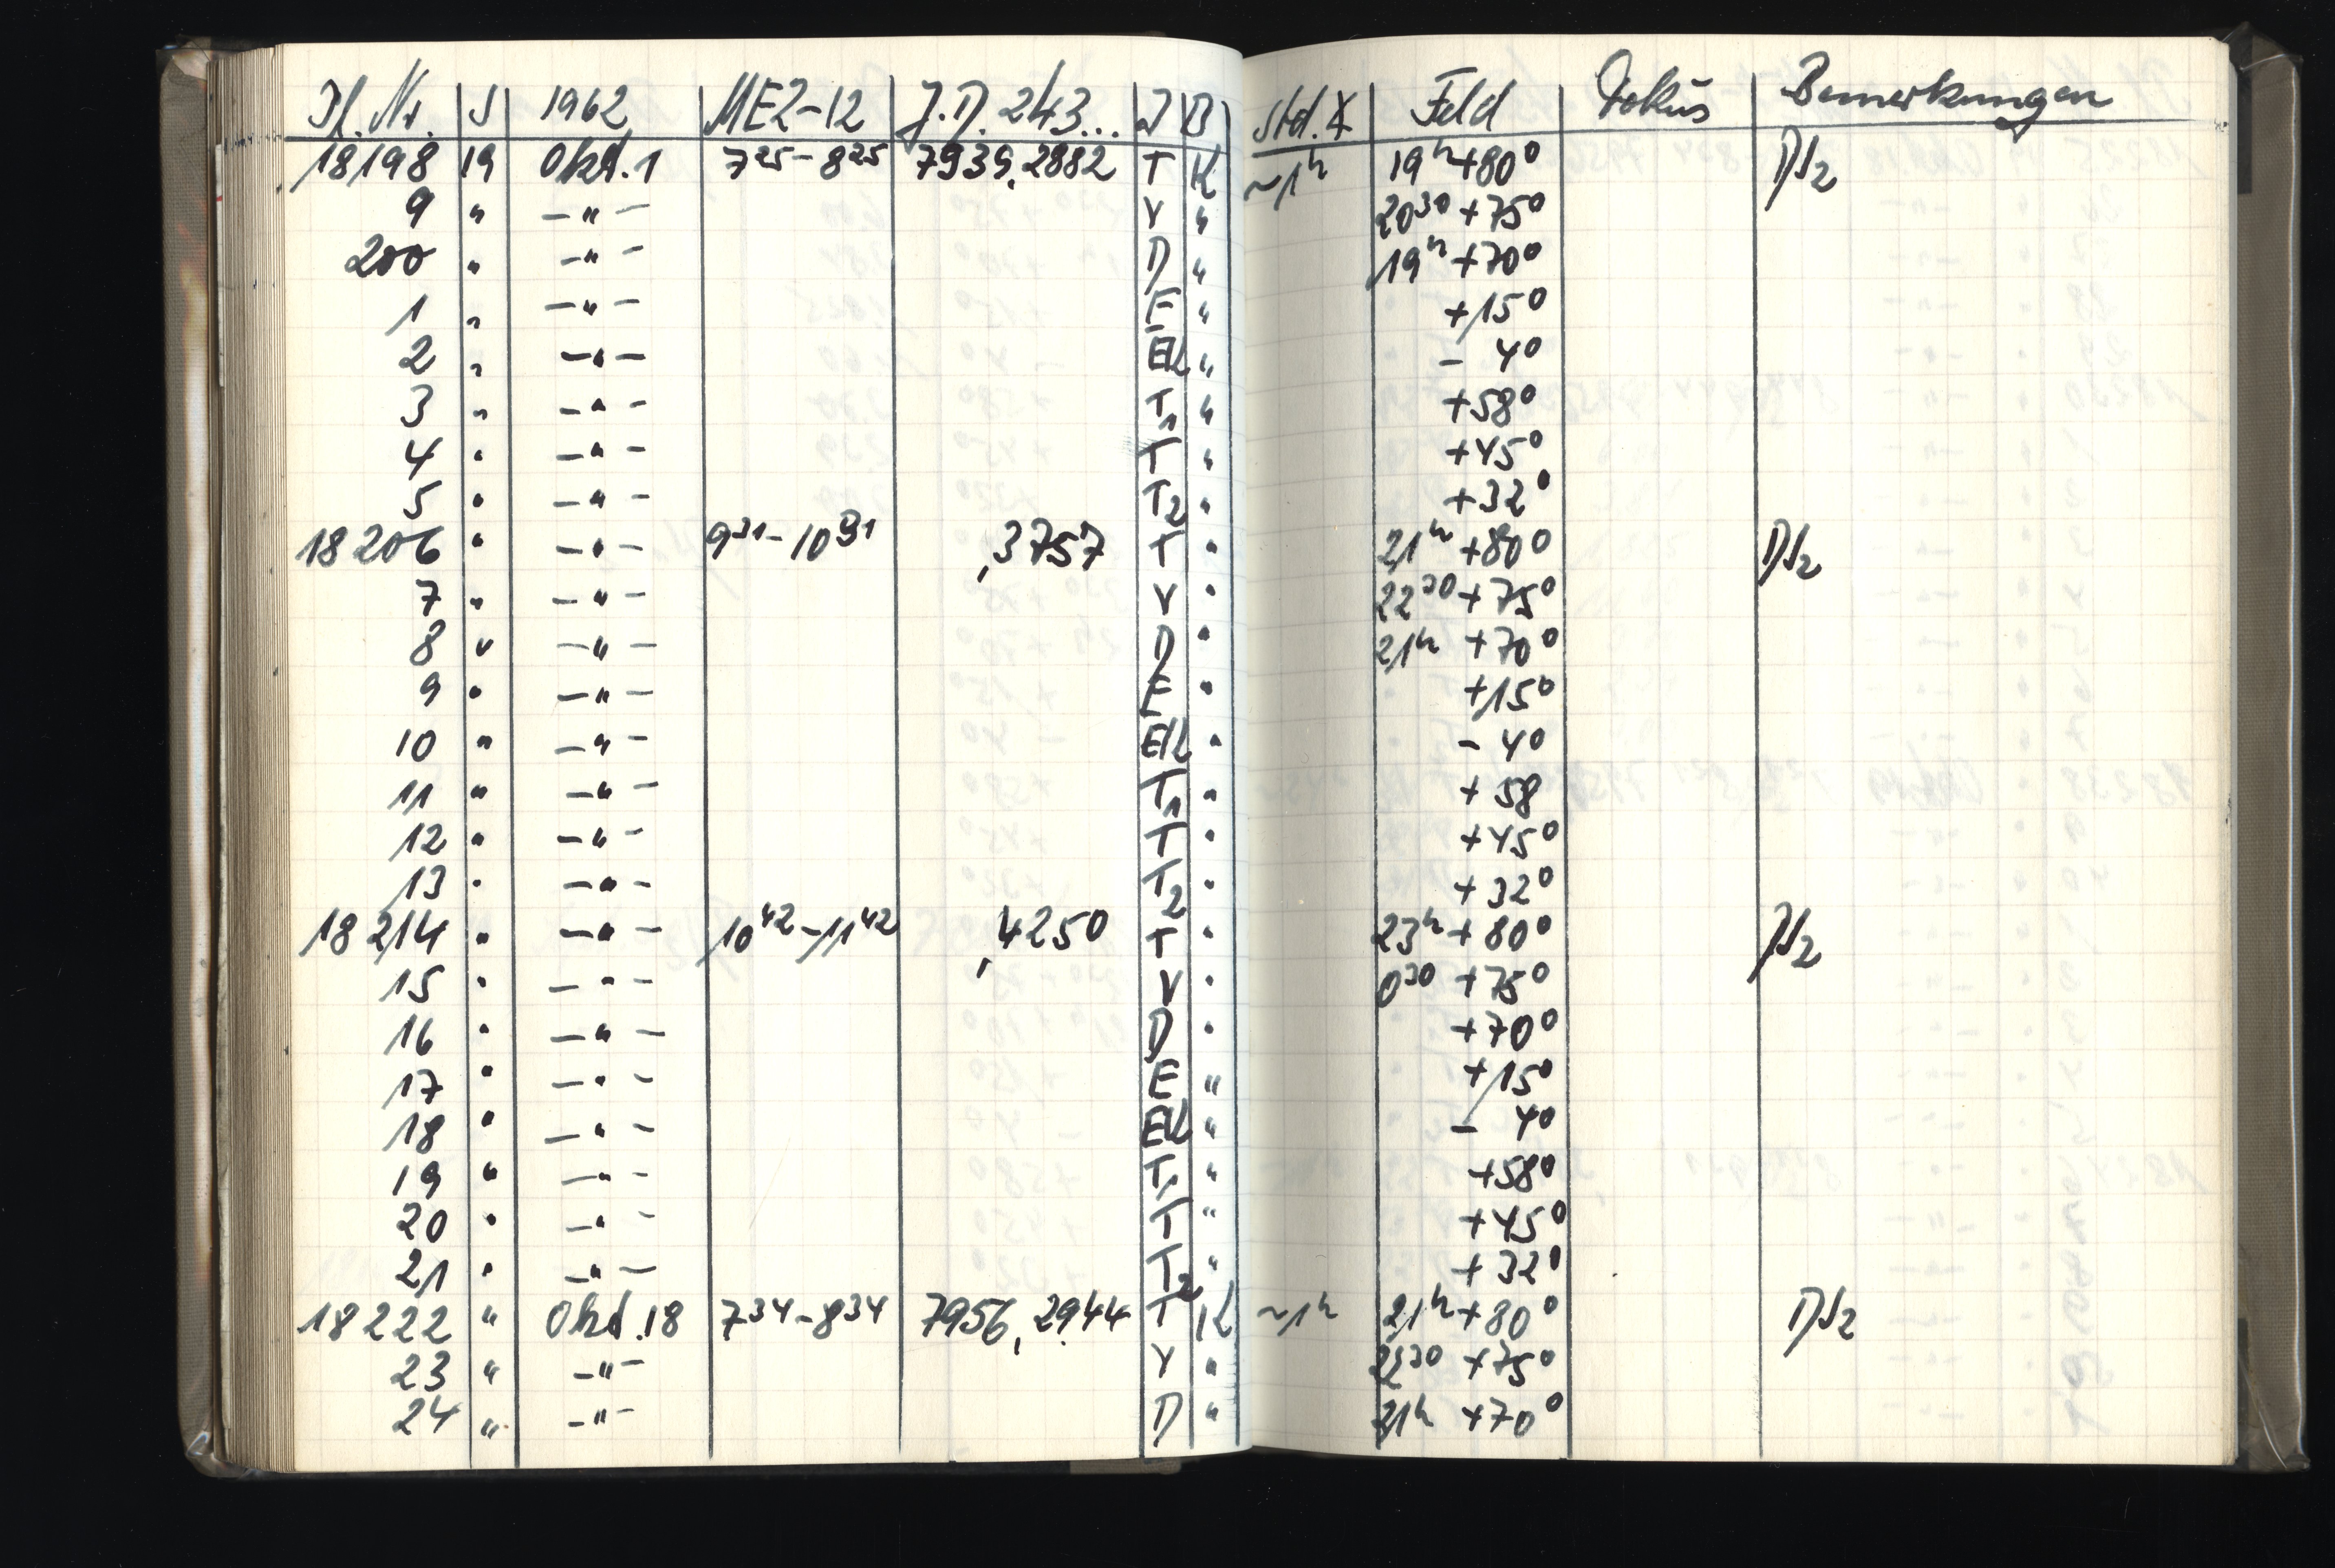 Pl. Nr. S 1962 MEZ-12 J.D. 243... I B Std. ∢ Feld Fokus Bemerkungen
18198 19 Okt. 1 7²⁵-8²⁵ 7939,2882 T K ~1ʰ 19ʰ+80° DS2
9 " -"- V " 20³⁰ +75°
200 " -"- D " 19ʰ +70°
1 " -"- E " +15°
2 " -"- EL " - 4°
3 " -"- T1 " +58°
4 " -"- T " +45°
5 " -"- T2 " +32°
18206 " -"- 9³¹-10³¹ ,3757 T " 21ʰ +80° DS2
7 " -"- V " 22³⁰ +75°
8 " -"- D " 21ʰ +70°
9 " -"- E " +15°
10 " -"- EL " - 4°
11 " -"- T1 " +58
12 " -"- T " +45°
13 " -"- T2 " +32°
18214 " -"- 10⁴²-11⁴² ,4250 T " 23ʰ +80° DS2
15 " -"- V " 0³⁰ +75°
16 " -"- D " +70°
17 " -"- E " +15°
18 " -"- EL " - 4°
19 " -"- T1 " +58°
20 " -"- T " +45°
21 " -"- T2 " +32°
18222 " Okt. 18 7³⁴-8³⁴ 7956,2944 T K ~1ʰ 21ʰ+80° DS2
23 " -"- V " 22³⁰ +75°
24 " -"- D " 21ʰ +70°